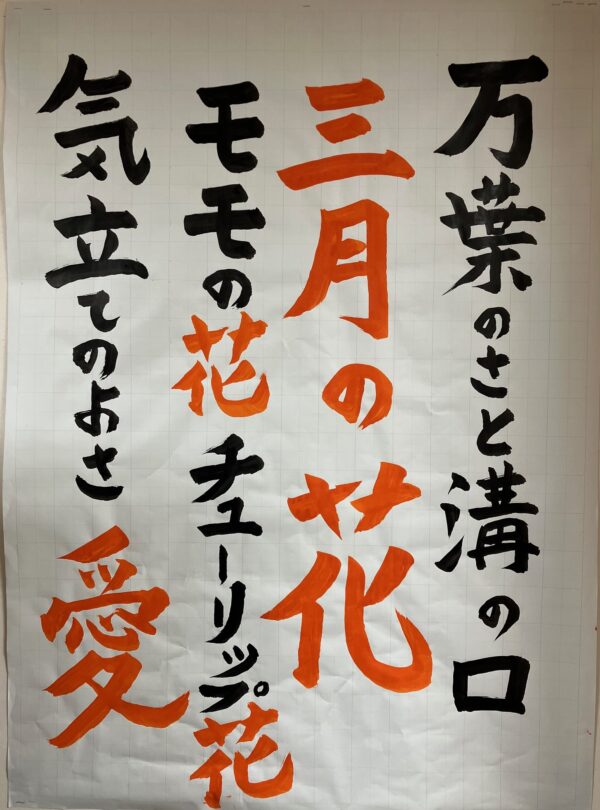 万葉のさと溝の口
三月の花
モモの花 チューリップ花
気立てのよさ 愛